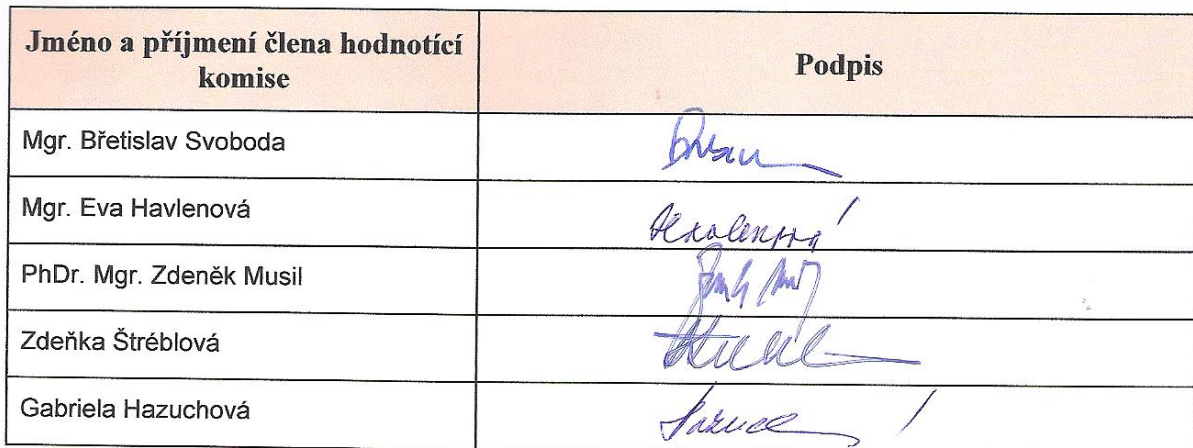 Jméno a příjmení člena hodnotící
komise
Podpis
Mgr. Břetislav Svoboda
Mgr. Eva Havlenová
PhDr. Mgr. Zdeněk Musil
Zdeňka Štréblová
Gabriela Hazuchová